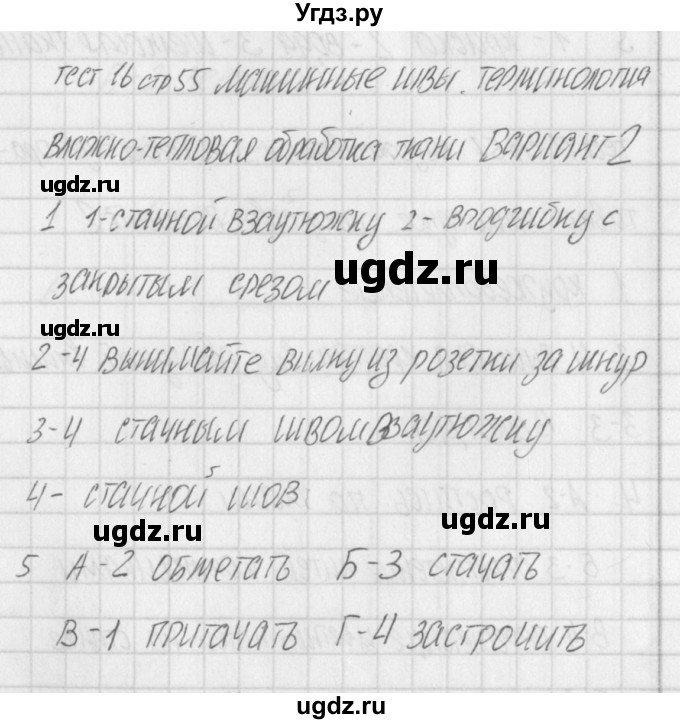 Угдз.ру
тест 16 стр 55 машинные швы. терминология
влажно-тепловая обработка ткани Вариант 2
ugdz.ru
1 1-стачной взаутюжку 2- вподгибку с
закрытым срезом ugdz.ru
ugdz.ru
2-4 вынимайте вилку из розетки за шнур
3-4 стачным швом взаутюжку
4- стачной шов
ugdz.ru ugdz.ru
5 А-2 обметать Б-3 стачать
В-1 притачать Г-4 застрочить
ugdz.ru
ugdz.ru